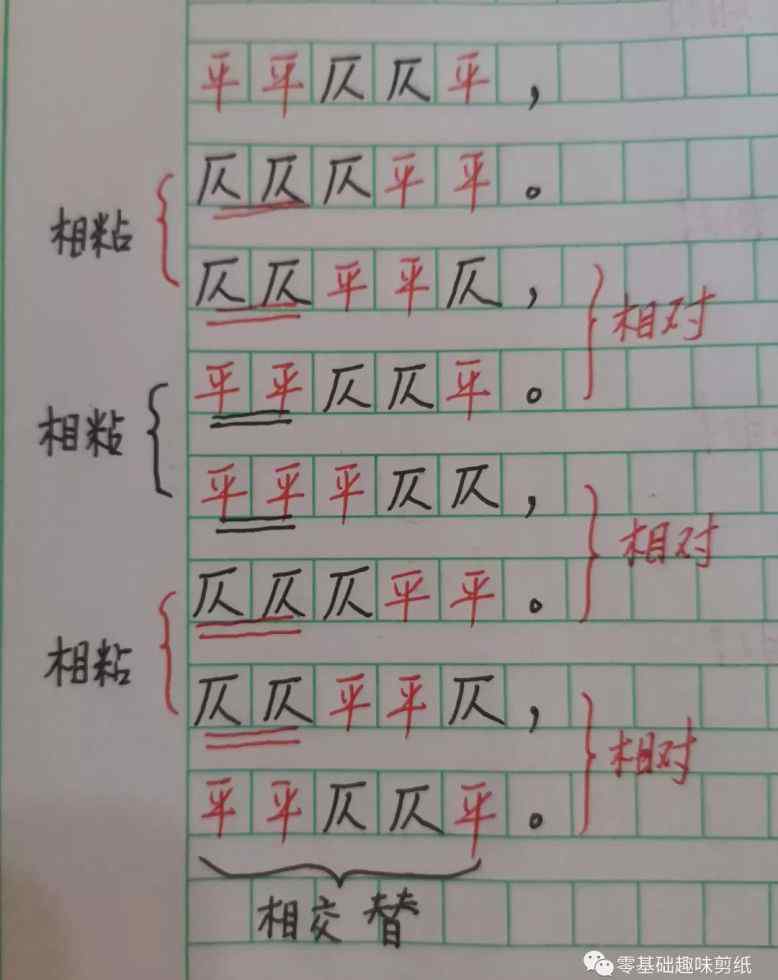 平平仄仄平，
仄仄仄平平。
相粘
仄仄平平仄，
相对
平平仄仄平。
相粘
平平平仄仄，
相对
仄仄仄平平。
相粘
仄仄平平仄，
相对
平平仄仄平。
相交替
零基础趣味剪纸